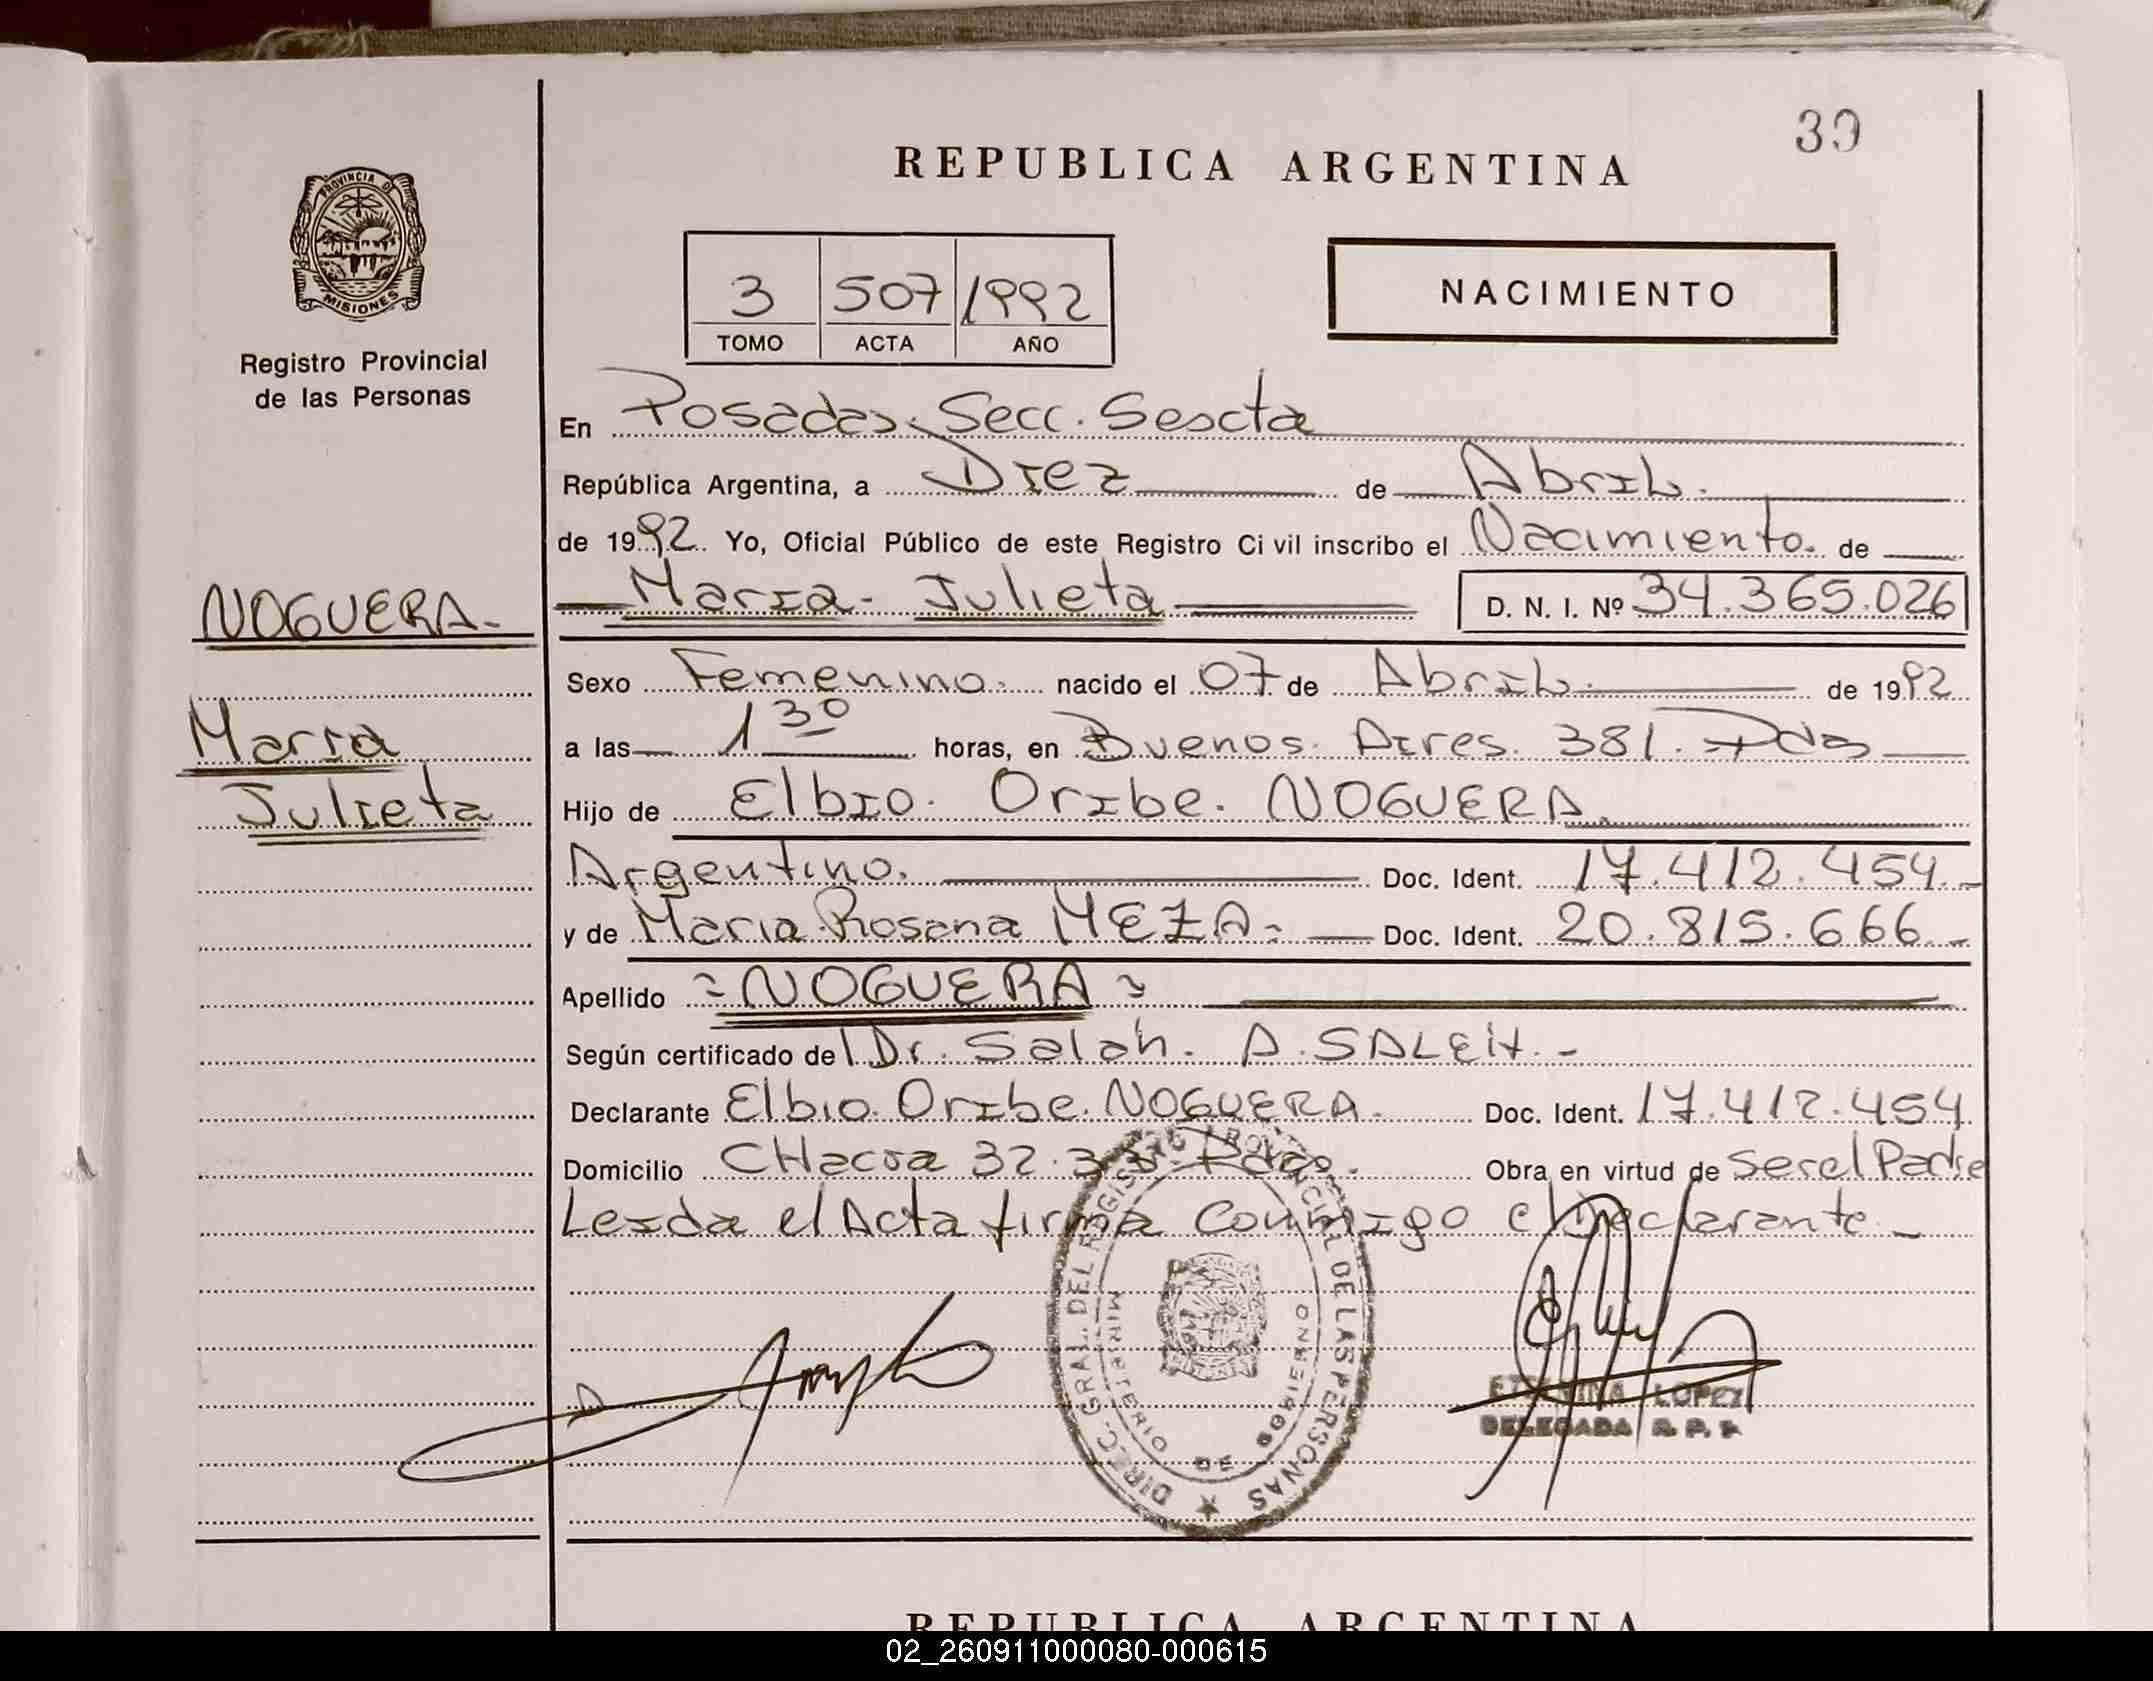 39
REPUBLICA ARGENTINA
PROVINCIA DE
MISIONES
Registro Provincial
de las Personas
3 507 1992
TOMO ACTA AÑO
NACIMIENTO
En Posadas. Secc. Sexcta
República Argentina, a Diez de Abril.
de 1992. Yo, Oficial Público de este Registro Ci vil inscribo el Nacimiento. de
Maria- Julieta D. N. I. Nº 34.365.026
NOGUERA.-
Maria
Julieta
Sexo Femenino. nacido el 07 de Abril. de 1992
a las 1 30 horas, en Buenos. Aires. 381. Pdas
Hijo de Elbio. Oribe. NOGUERA.
Argentino. Doc. Ident. 17.412.454.-
y de Maria Rosana MEZA.- Doc. Ident. 20.815.666.-
Apellido =NOGUERA=
Según certificado del Dr. Salah. A. SALEH.-
Declarante Elbio. Oribe. NOGUERA. Doc. Ident. 17.412.454.
Domicilio CHacra 32.33. Pdas. Obra en virtud de ser el Padre
Leida el Acta firma conmigo el declarante.-
DIREC. GRAL. DEL REGISTRO PROVINCIAL DE LAS PERSONAS
MINISTERIO DE GOBIERNO
LOPEZ
DELEGADA R. P. P.
REPUBLICA ARGENTINA
02_260911000080-000615